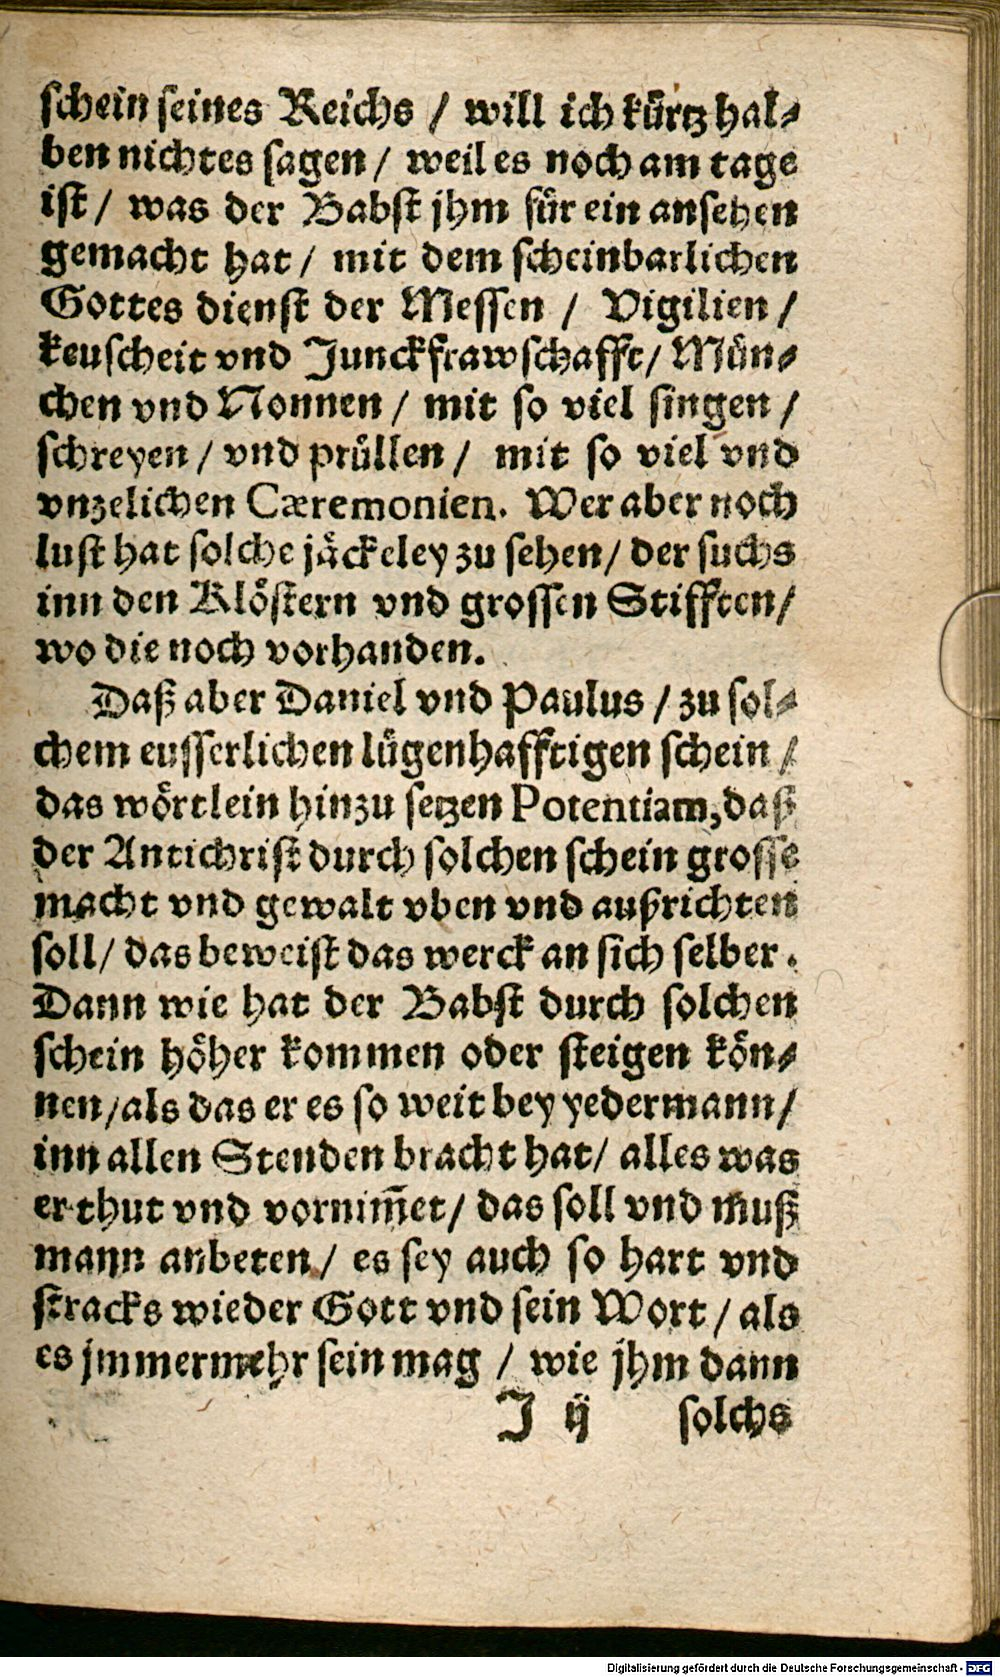 schein seines Reichs / will ich kürtz hal-
ben nichtes sagen / weil es noch am tage
ist / was der Babst jhm für ein ansehen
gemacht hat / mit dem scheinbarlichen
Gottes dienst der Messen / Vigilien /
keuscheit vnd Junckfrawschafft / Mün-
chen vnd Nonnen / mit so viel singen /
schreyen / vnd prüllen / mit so viel vnd
vnzelichen Cæremonien. Wer aber noch
lust hat solche jäckeley zu sehen / der suchs
inn den Klöstern vnd grossen Stifften /
wo die noch vorhanden.
Daß aber Daniel vnd Paulus / zu sol-
chem eusserlichen lügenhafftigen schein /
das wörtlein hinzu setzen Potentiam, daß
der Antichrist durch solchen schein grosse
macht vnd gewalt vben vnd außrichten
soll / das beweist das werck an sich selber.
Dann wie hat der Babst durch solchen
schein höher kommen oder steigen kön-
nen / als das er es so weit bey yedermann /
inn allen Stenden bracht hat / alles was
er thut vnd vornim̃et / das soll vnd muß
mann anbeten / es sey auch so hart vnd
stracks wieder Gott vnd sein Wort / als
es jmmermehr sein mag / wie jhm dann
J ij solchs
Digitalisierung gefördert durch die Deutsche Forschungsgemeinschaft - DFG